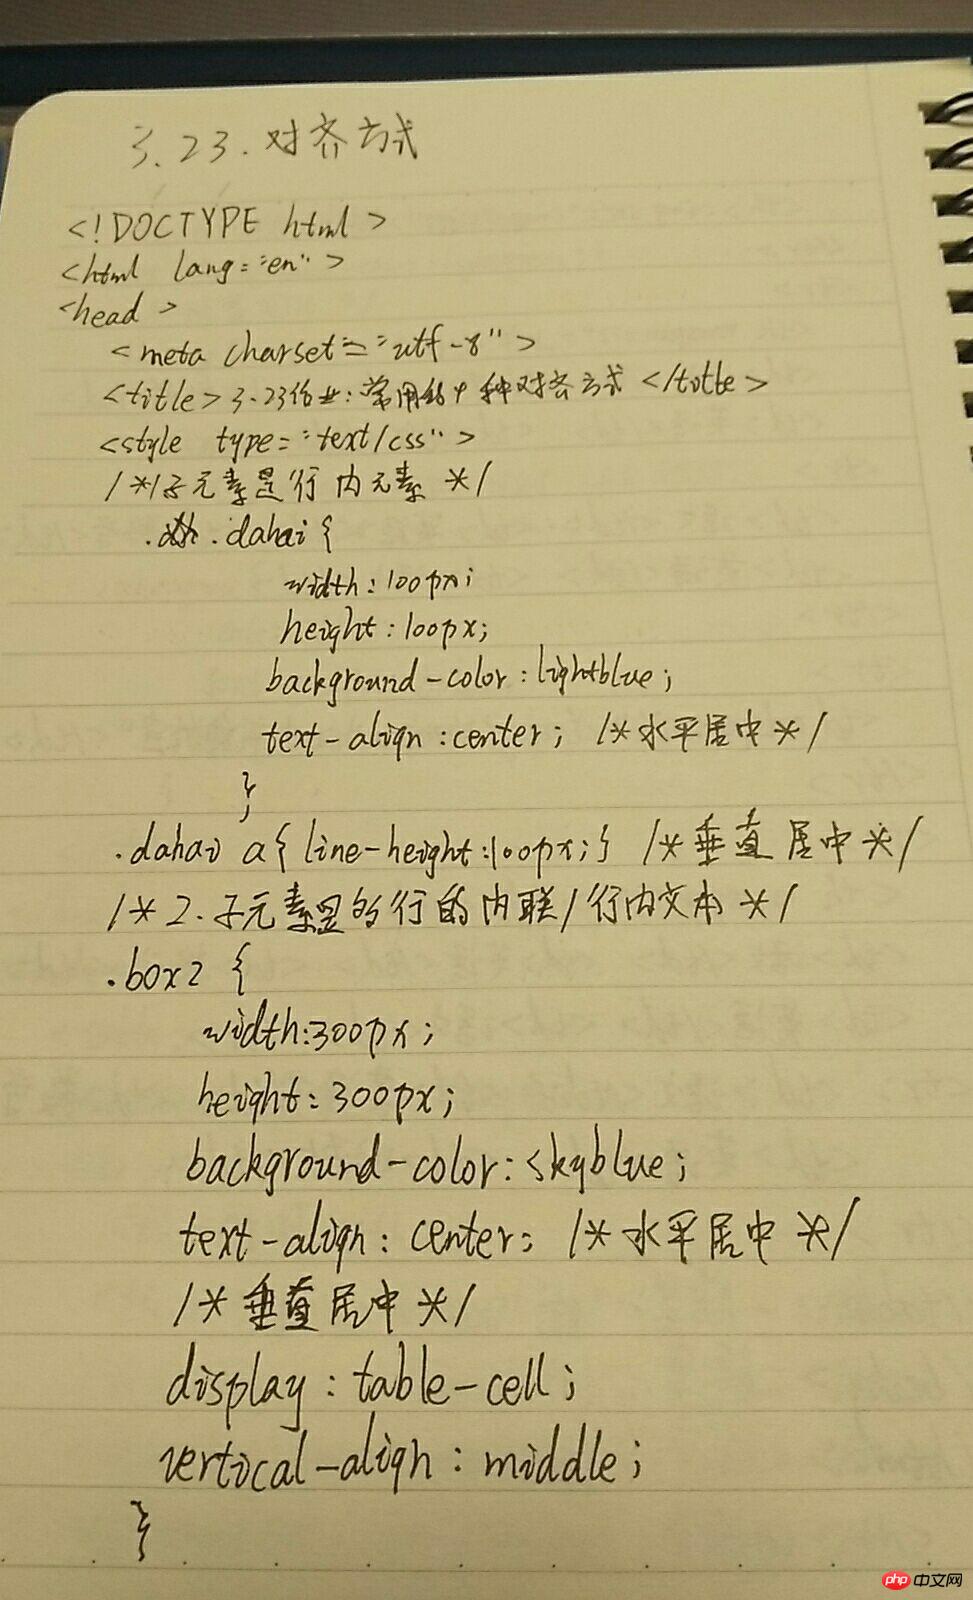 3.23.对齐方式
<!DOCTYPE html>
<html lang="en">
<head>
<meta charset="utf-8">
<title>3.23作业:常用的4种对齐方式</title>
<style type="text/css">
/*1子元素是行内元素*/
.dahai{
width:100px;
height:100px;
background-color:lightblue;
text-align:center; /*水平居中*/
}
.dahai a{line-height:100px;} /*垂直居中*/
/*2.子元素是的行的内联/行内文本*/
.box2 {
width:300px;
height:300px;
background-color:skyblue;
text-align:center; /*水平居中*/
/*垂直居中*/
display:table-cell;
vertical-align:middle;
}
php中文网